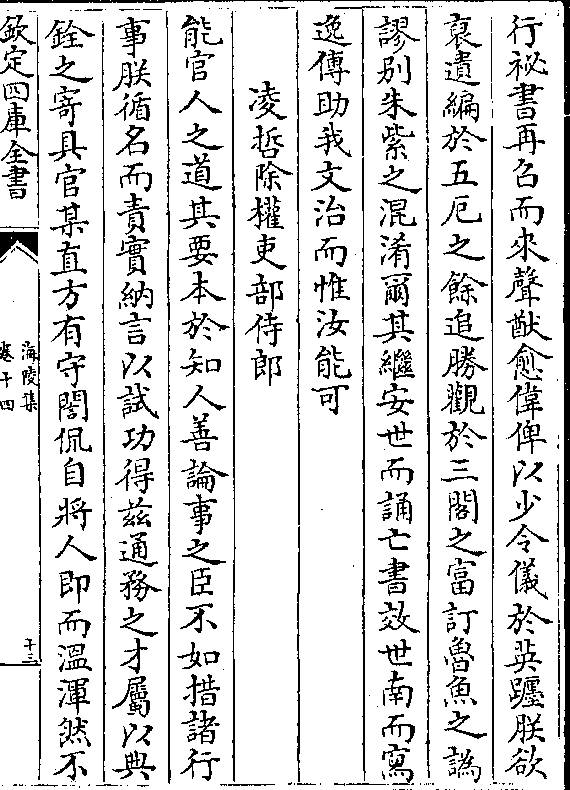 行祕書再召而來聲猷愈偉俾以少令儀於英躔朕欲
裒遺編於五厄之餘追勝觀於三閣之富訂魯魚之譌
謬别朱紫之混淆爾其繼安世而誦亡書效世南而寫
逸傳助我文治而惟汝能可
凌哲除權吏部侍郎
能官人之道其要本於知人善論事之臣不如措諸行
事朕循名而責實納言以試功得茲通務之才屬以典
銓之寄具官某直方有守誾侃自將人即而溫渾然不
欽定四庫全書
海陵集
卷十四
十三